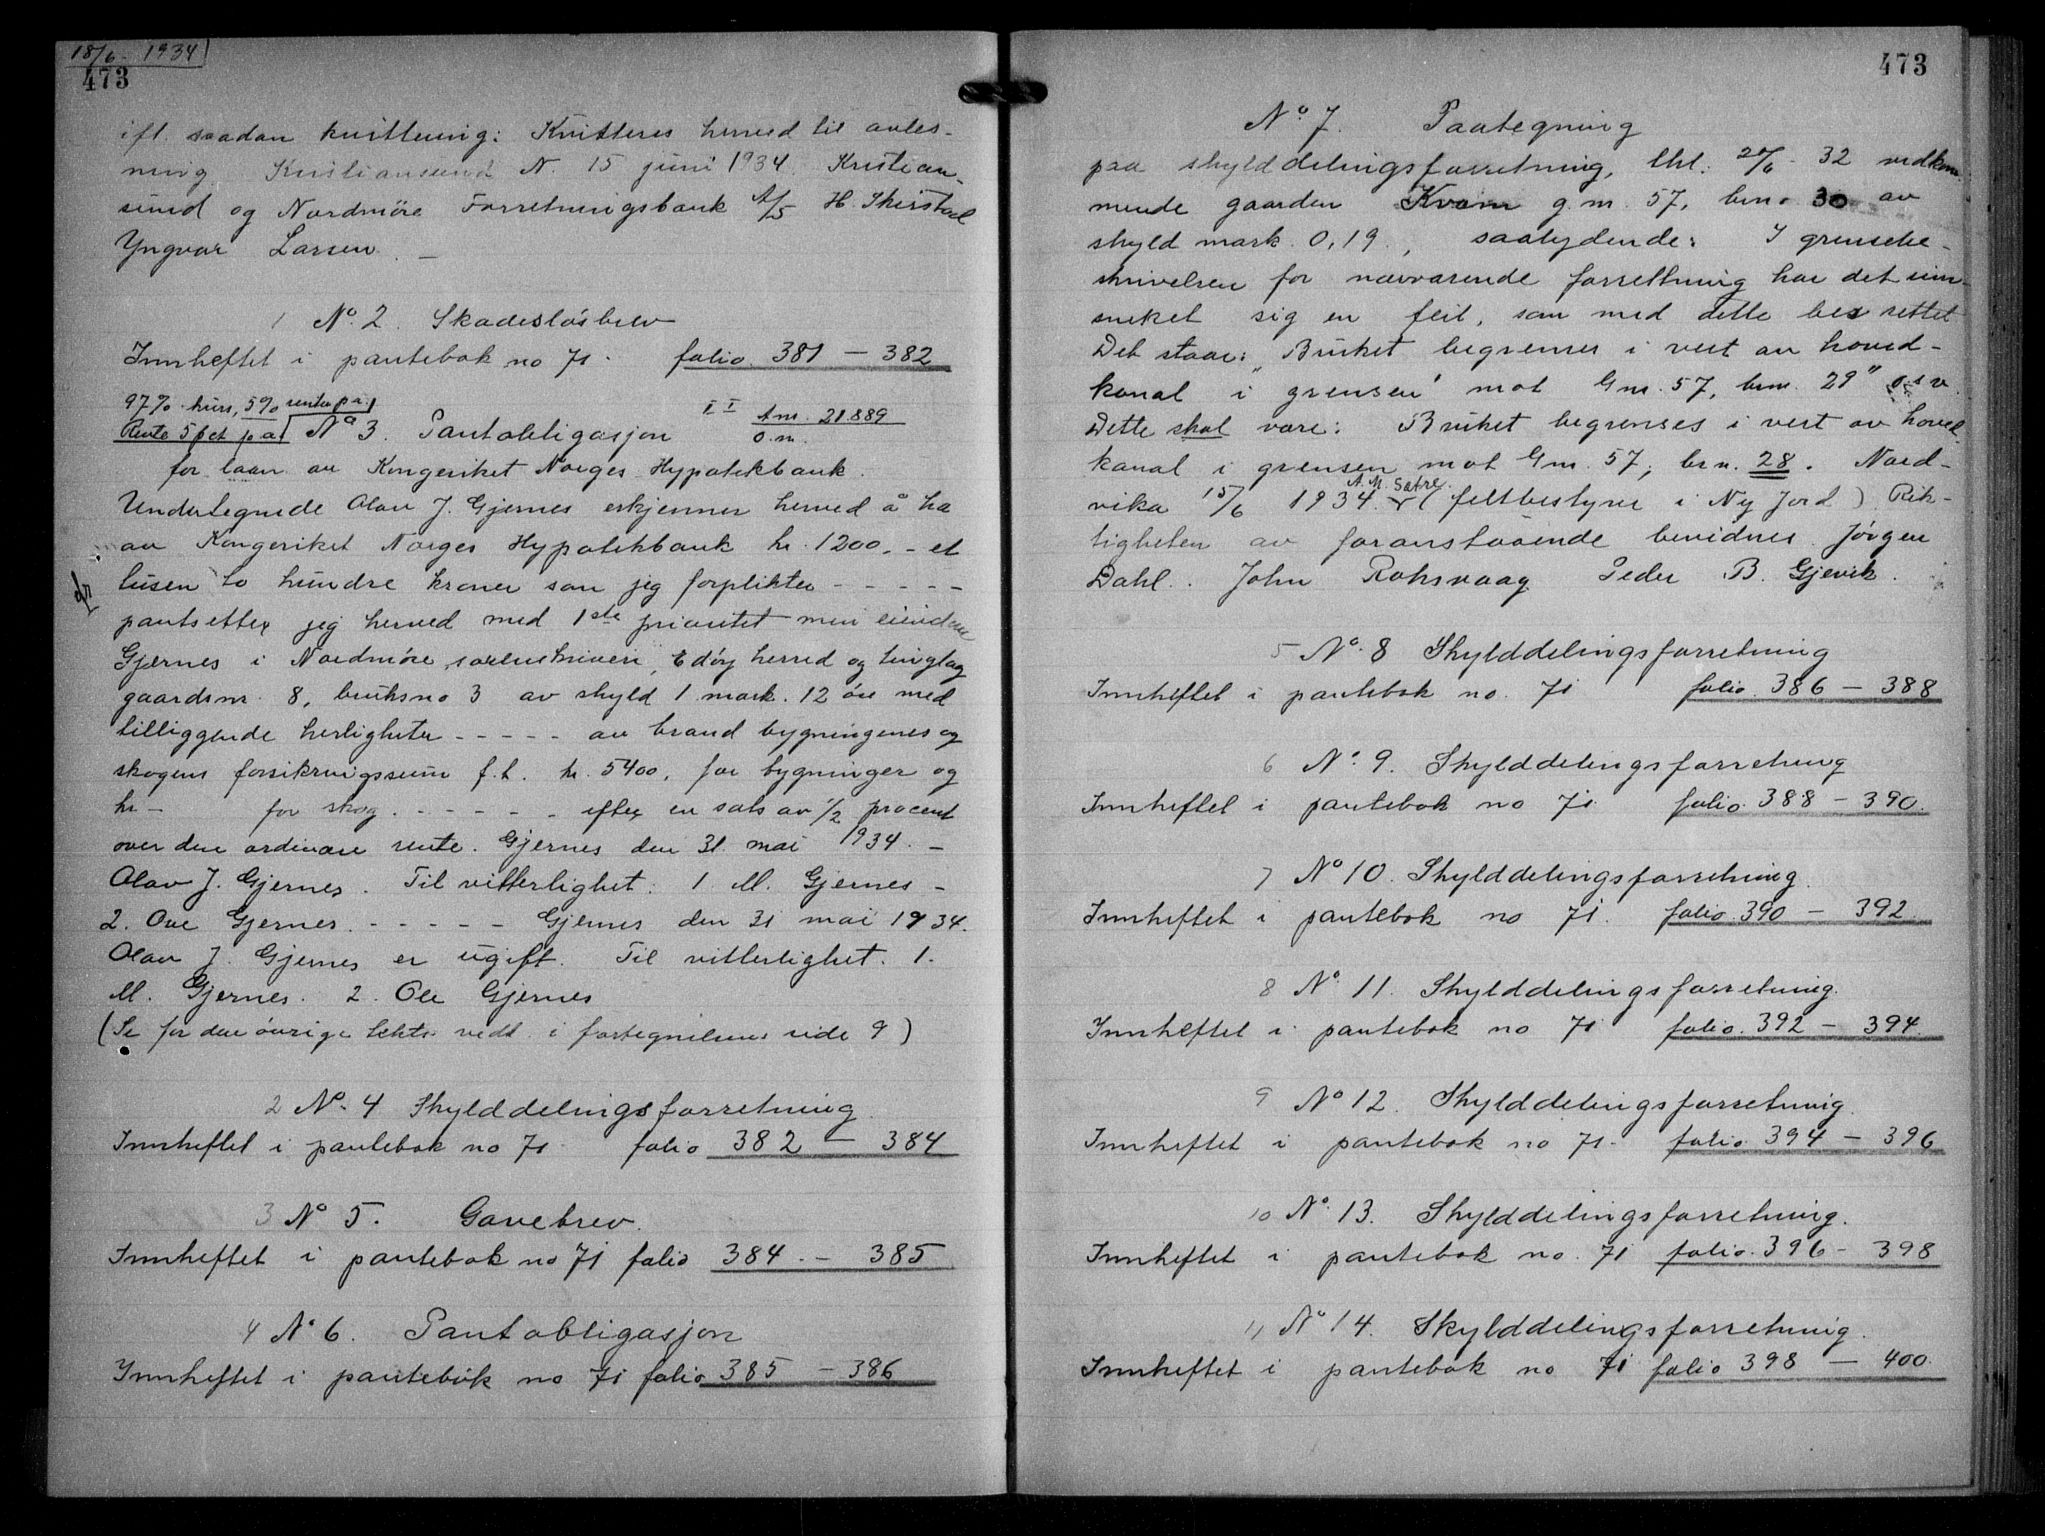 18/6 - 1934
473
ifl. saadan kvittering: Kvitteres herved til avles-
ning Kristiansund N. 15 juni 1934. Kristian-
sund og Nordmøre Forretningsbank A/S H.
Yngvar Larsen. —
1 No. 2. Skadesløsbrev
Innheftet i pantebok no 71. folio 381 — 382
97% kurs, 5% rente p.a.
Rente 5 pct p.a. No 3. Pantobligasjon I I Anr. 21889
O.m.
for laan av Kongeriket Norges Hypotekbank.
Undertegnede Olav J. Gjernes erkjenner herved å ha
av Kongeriket Norges Hypotekbank kr. 1200,- et
tusen to hundre kroner som jeg forplikter - - - - -
pantsetter jeg herved med 1ste prioritet min eiendom
Gjernes i Nordmøre sorenskriveri, Edøy herred og tinglag
gaardsnr. 8, bruksno 3 av skyld 1 mark. 12 øre med
tilliggende herligheter - - - - - av brand bygningenes og
skogens forsikringssum f.t. kr. 5400, for bygninger og
kr — for skog. - - - - - efter en sats av 1/2 procent
over den ordinære rente. Gjernes den 31. mai 1934. —
Olav J. Gjernes. Til vitterlighet: 1. M. Gjernes -
2. Ove Gjernes. - - - - - Gjernes den 31 mai 1934.
Olav J. Gjernes er ugift. Til vitterlighet. 1.
M. Gjernes. 2. Ole Gjernes
(Se for den øvrige tekts vedk. i fortegnelsens side 9)
2 No. 4 Skylddelingsforretning.
Innheftet i pantebok no 71. folio 382 — 384
3 No 5. Gavebrev.
Innheftet i pantebok no 71 folio 384. — 385
4 No 6. Pantobligasjon
Innheftet i pantebok no 71 folio 385 — 386
473
No. 7. Paategning
paa skylddelingsforretning, thl. 20/6 - 32 vedkom-
mende gaarden Kvam g.nr. 57, brno 30 av
skyld mark. 0,19, saalydende: I grensebe-
skrivelsen for nærværende forrettning har det inn-
sneket sig en feil, som med dette bes rettet
Det staar: "Bruket begrenses i vest av hoved-
kanal i grensen mot Gnr. 57, brnr. 29" o s v.
Dette skal være: Bruket begrenses i vest av hoved-
kanal i grensen mot Gnr. 57, brn. 28. Nord-
vika 15/6 1934. A. M. Sætre. (feltbestyrer i Ny Jord) Rik-
tigheten av foranstående bevidnes. Jørgen
Dahl. John Roksvaag Peder B. Gjevik.
5 No. 8 Skylddelingsforretning
Innheftet i pantebok no. 71 folio. 386 — 388
6 No. 9. Skylddelingsforretning
Innheftet i pantebok no 71. folio. 388 — 390.
7 No 10. Skylddelingsforretning.
Innheftet i pantebok no 71. folio. 390 — 392
8 No. 11. Skylddelingsforretning.
Innheftet i pantebok no 71 folio. 392 — 394.
9 No 12. Skylddelingsforretning.
Innheftet i pantebok no 71. folio 394 — 396
10 No. 13. Skylddelingsforretning.
Innheftet i pantebok no. 71 folio. 396 - 398
11 No 14. Skylddelingsforretning.
Innheftet i pantebok no 71 folio 398 — 400.